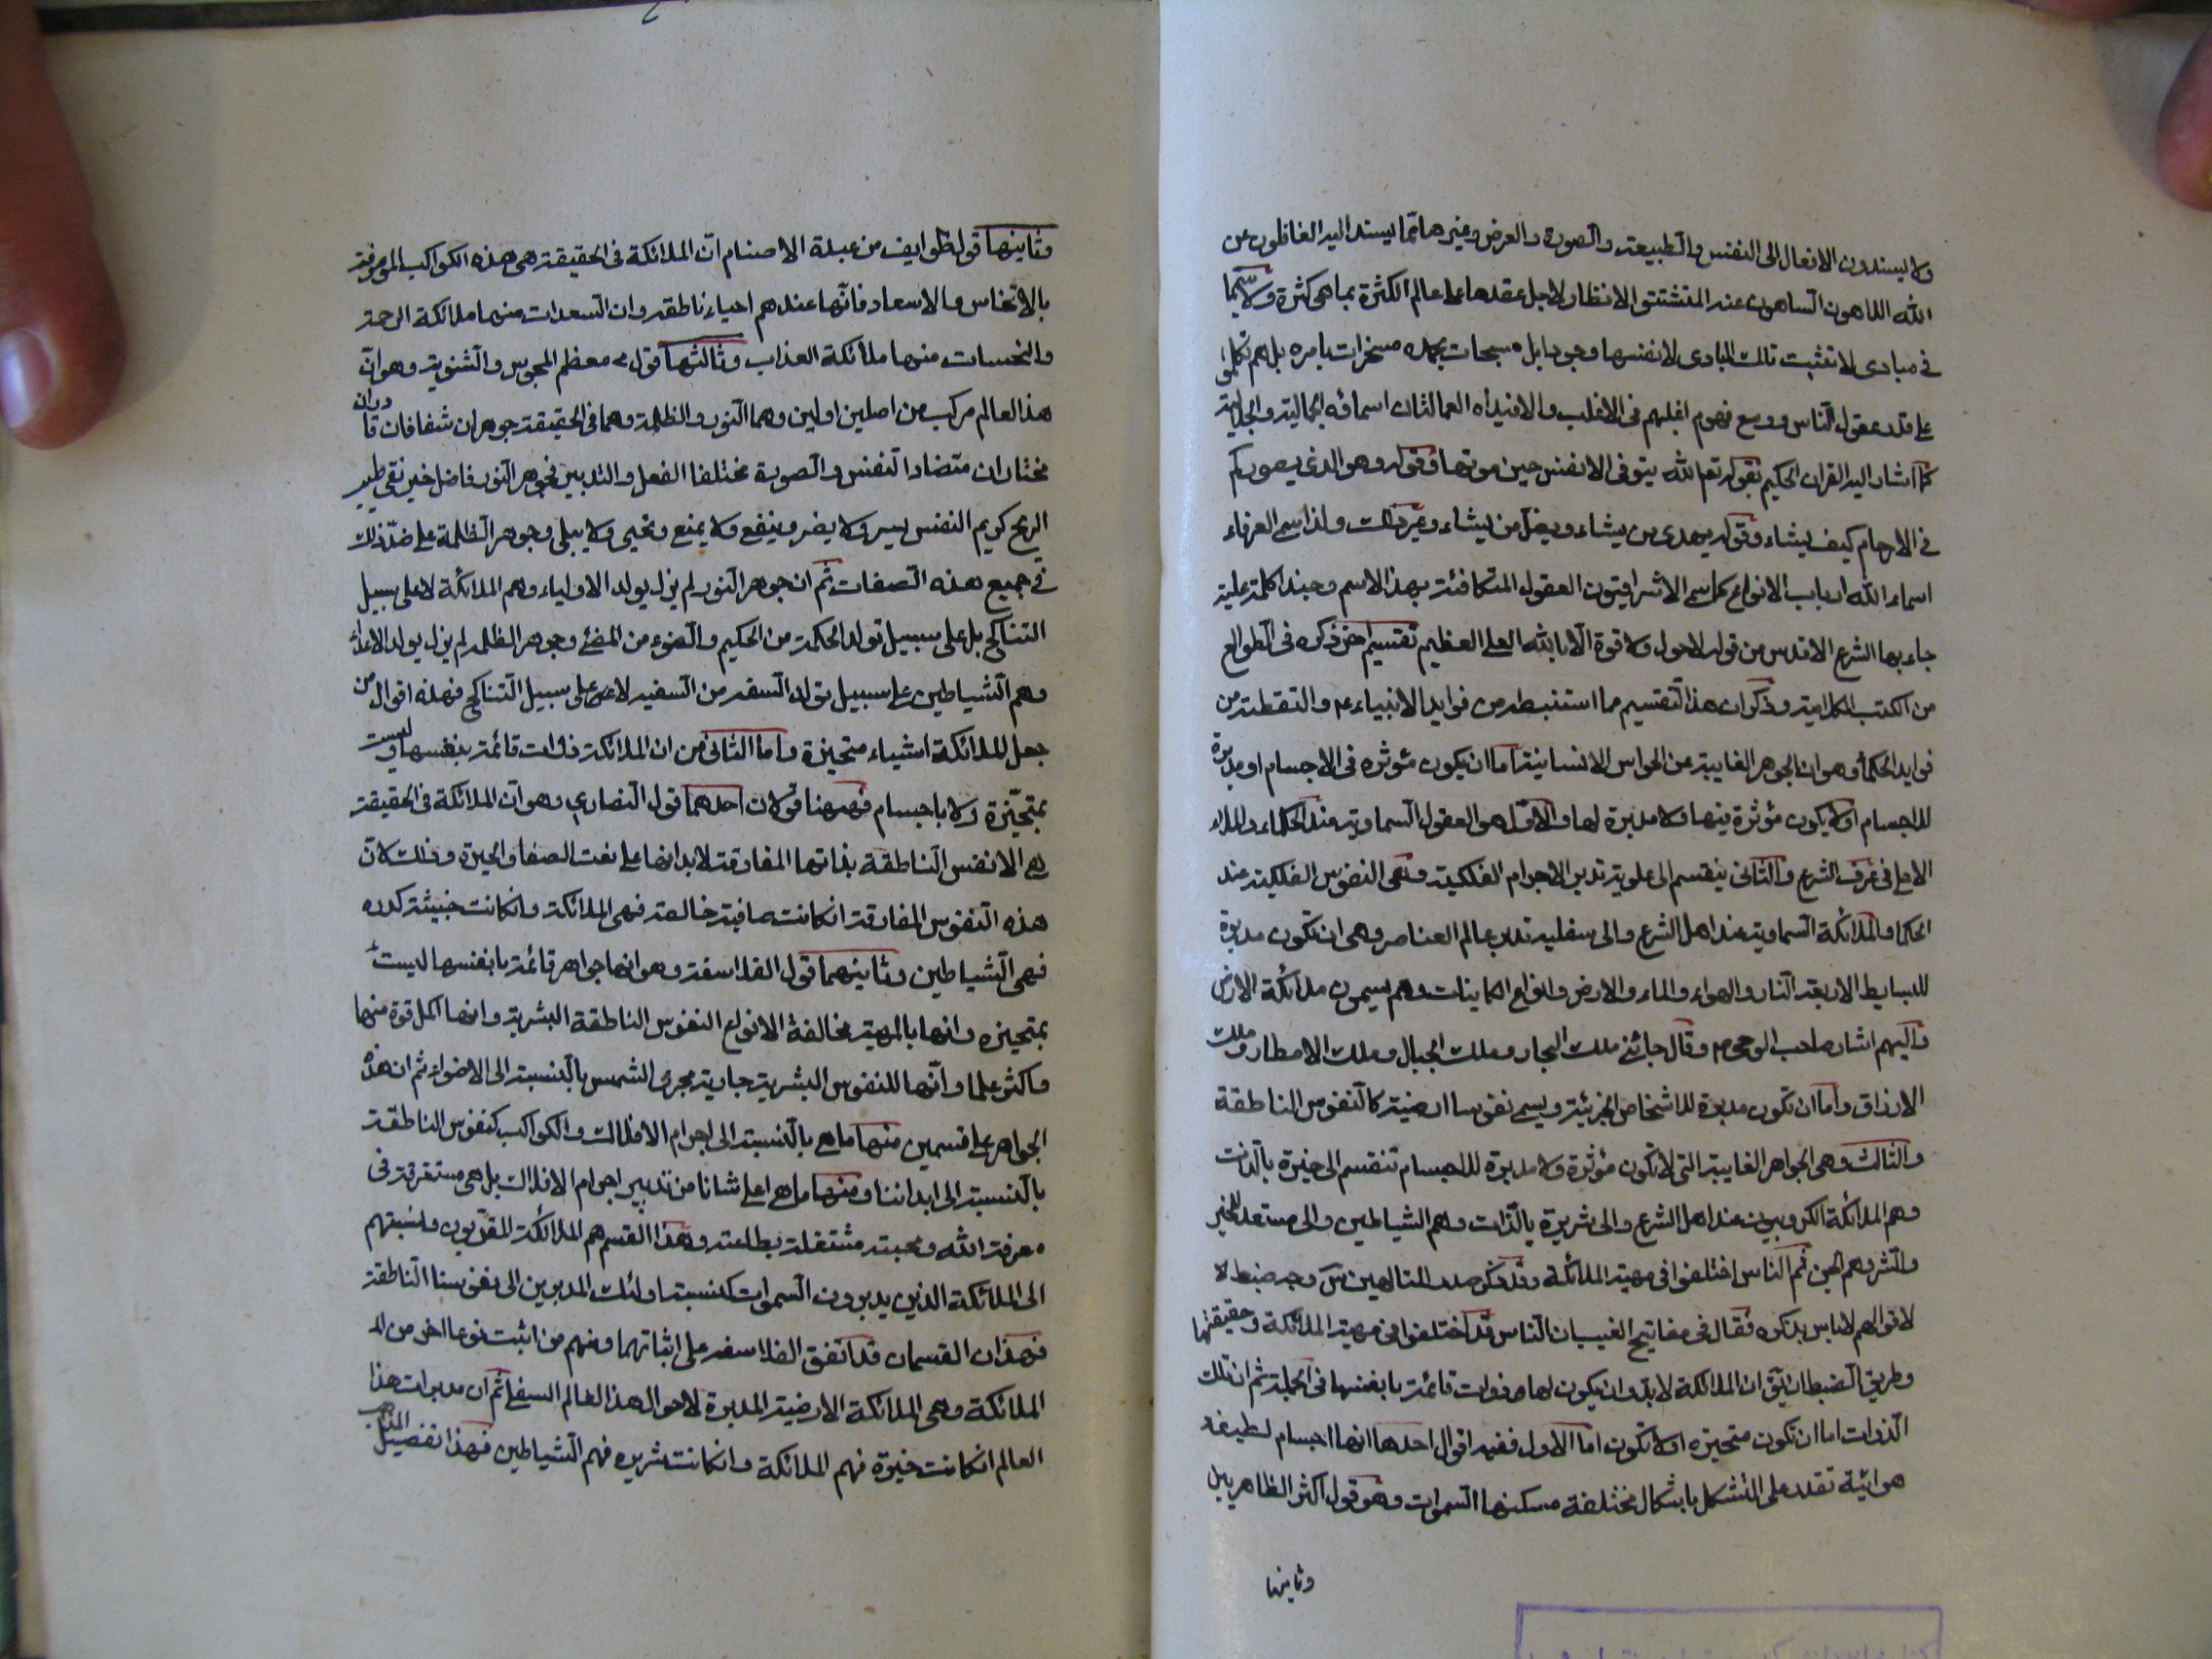 ولا يسندون الافعال الى النفس والطبيعة والصورة والعرض وغيرها مما يسند اليه الغافلون عن
الله اللاهون الساهون عند المتشتتو الانظار لاجل عقدها على عالم الكثرة بما هى كثرة ولا سيما
فى مبادى لا تثبت تلك المبادى لانفسها وجودا بل مسبحات بحمده مسخرات بامره بل هم تكلموا
على قدر عقول الناس ووسع فهوم اغلبهم فى الاغلب والا فيداه العمالتان اسمائه الجمالية والجلالية
كما اشار اليه القران الحكيم بقوله تعم الله يتوفى الانفس حين موتها وقوله وهو الذى يصوركم
فى الارحام كيف يشاء وقوله يهدى من يشاء ويضل من يشاء وغير ذلك ولذا سمى العرفاء
اسماء الله ارباب الانواع كما سمى الاشراقيون العقول المتكافئة بهذا الاسم وحبذا كلمة علية
جاء بها الشرع الاقدس من قوله لا حول ولا قوة الا بالله العلى العظيم تقسيم اخر ذكره فى الطوالع
من الكتب الكلامية وذكر ان هذا التقسيم مما استنبطه من فوايد الانبياء ع والتقطته من
فوايد الحكماء وهو ان الجوهر الغايبة عن الحواس الانسانية اما ان يكون مؤثره فى الاجسام او مدبرة
للاجسام او لا يكون مؤثرة فيها ولا مدبرة لها والاول هو العقول السماوية عند الحكماء والملاء
الاعلى فى عرف الشرع والثانى ينقسم الى علوية تدبر الاجرام الفلكية وهى النفوس الفلكية عند
الحكما والملائكة السماوية عند اهل الشرع والى سفلية تدبر عالم العناصر وهى ان تكون مدبرة
للبسايط الاربعة النار والهواء والماء والارض وانواع الكاينات وهم يسمون ملائكة الارض
واليهم اشار صاحب الوحى ص وقال جائنى ملك البحار وملك الجبال وملك الامطار وملك
الارزاق واما ان تكون مدبرة للاشخاص الجزئية ويسمى نفوسا ارضية كالنفوس الناطقة
والثالث وهى الجواهر الغايبة التى لا تكون مؤثرة ولا مدبرة للاجسام تنقسم الى خيرة بالذات
وهم الملائكة الكروبيون عند اهل الشرع والى شريرة بالذات وهم الشياطين والى مستعد للخير
والشر وهم الجن ثم الناس اختلفوا فى مهية الملائكة وقد ذكر صدر المتالهين س وجه ضبط لا
لاقوالهم لا باس بذكره فقال فى مفاتيح الغيب ان الناس قد اختلفوا فى مهية الملائكة وحقيقتها
وطريق الضبط ان يق ان الملائكة لابد وان يكون لها ذوات قائمة بانفسها فى الجملة ثم ان تلك
الذوات اما ان تكون متحيزه او لا تكون اما الاول ففيه اقوال احدها انها اجسام لطيفة
هوائية تقدر على التشكل باشكال مختلفة مسكنها السموات وهو قول اكثر الظاهريين
وثاينها
وثاينها قول طوايف من عبدة الاصنام ان الملائكة فى الحقيقة هى هذه الكواكب الموصوفة
بالانحاس والاسعاد فانها عندهم احياء ناطقه وان السعدات منها ملائكة الرحمة
والنحسات منها ملائكة العذاب وثالثها قول معظم المجوس والثنوية وهو ان
هذا العالم مركب من اصلين اولين وهما النور والظلمة وهما فى الحقيقة جوهران شفافان قادران
مختاران متضادا النفس والصورة مختلفا الفعل والتدبير فجوهر النور فاضل خير نقى طيب
الريح كريم النفس يسر ولا يضر وينفع ولا يمنع ويحيى ولا يبلى وجوهر الظلمة على ضد ذلك
فى جميع هذه الصفات ثم ان جوهر النور لم يزل يولد الاولياء وهم الملائكة لا على سبيل
التناكح بل على سبيل تولد الحكمة من الحكيم والضوء من المضئ وجوهر الظلمة لم يزل يولد الاعداء
وهم الشياطين على سبيل تولد السفه من السفيه لا على سبيل التناكح فهذه اقوال من
جعل الملائكة اشياء متحيزة واما الثانى من ان الملائكة ذوات قائمة بنفسها وليست
بمتحيزة ولا باجسام فههنا قولان احدهما قول النصارى وهو ان الملائكة فى الحقيقة
هى الانفس الناطقة بذاتها المفارقة لابدانها على نعت الصفا والخيرة وذلك لان
هذه النفوس المفارقة انكانت صافية خالصة فهى الملائكة وانكانت خبيثة كدره
فهى الشياطين وثاينهما قول الفلاسفة وهو انها جواهر قائمة بانفسها ليست
بمتحيزه وانها بالمهية مخالفة لانواع النفوس الناطقة البشرية وانها اكمل قوة منها
واكثر علما وانها للنفوس البشرية جارية مجرى الشمس بالنسبة الى الاضواء ثم ان هذه
الجواهر على قسمين منها ما هى بالنسبة الى اجرام الافلاك والكواكب كنفوس الناطقة
بالنسبة الى ابداننا ومنها ما هى اعلى شانا من تدبير اجرام الافلاك بل هى مستغرقة فى
معرفة الله ومحبته مشتغلة بطاعته وهذا القسم هم الملائكة المقربون ونسبتهم
الى الملائكة الذين يدبرون السموات كنسبة اولئك المدبرين الى نفوسنا الناطقة
فهذان القسمان قد اتفق الفلاسفة على اثباتهما ومنهم من اثبت نوعا اخر من الم
الملائكة وهى الملائكة الارضية المدبرة لاحوال هذا العالم السفلى ثم ان مدبرات هذا
العالم انكانت خيرة فهم الملائكة وانكانت شريره فهم الشياطين فهذا تفصيل المذاهب